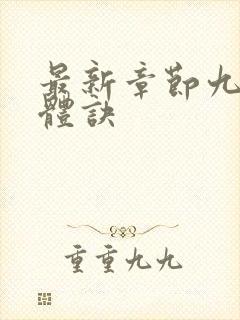 最新章節九
體訣
重重九九